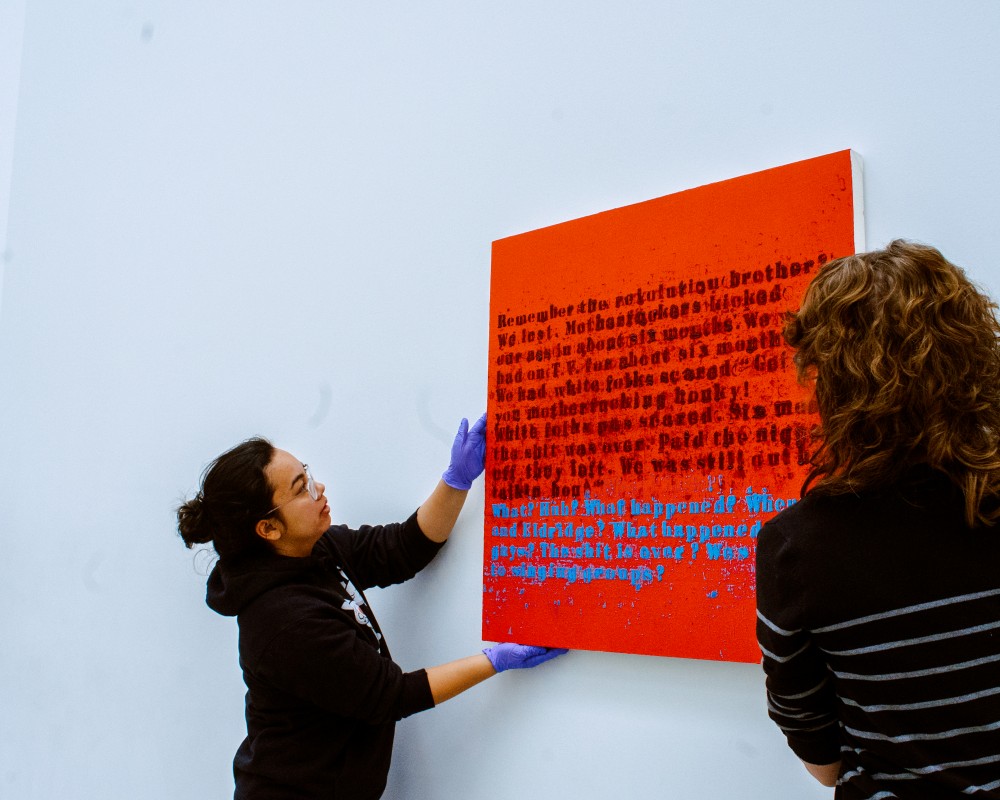 Remember the revolution, brother?
We lost. Motherfuckers kicked
our ass in about six months. We
had our T.V. for about six month
We had white folks scared. "Get
you motherfucking honky!
White folks was scared. Six
the shit was over. Paid the
off they left. We was still out
What? Huh? What happened? Where
and Eldridge? What happened
guys? The shit is over? We
to singing groups?